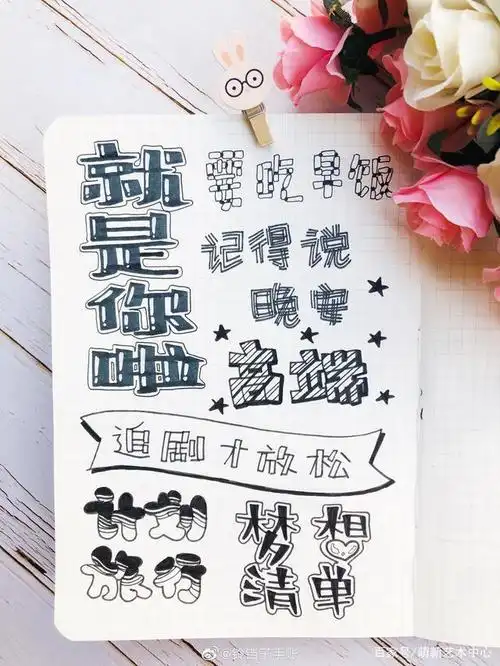 就是你啦
要吃早饭
记得说
晚安
高端
追剧才放松
计划
旅行
梦想
清单
@铃铛子手账
百家号/萌新艺术中心